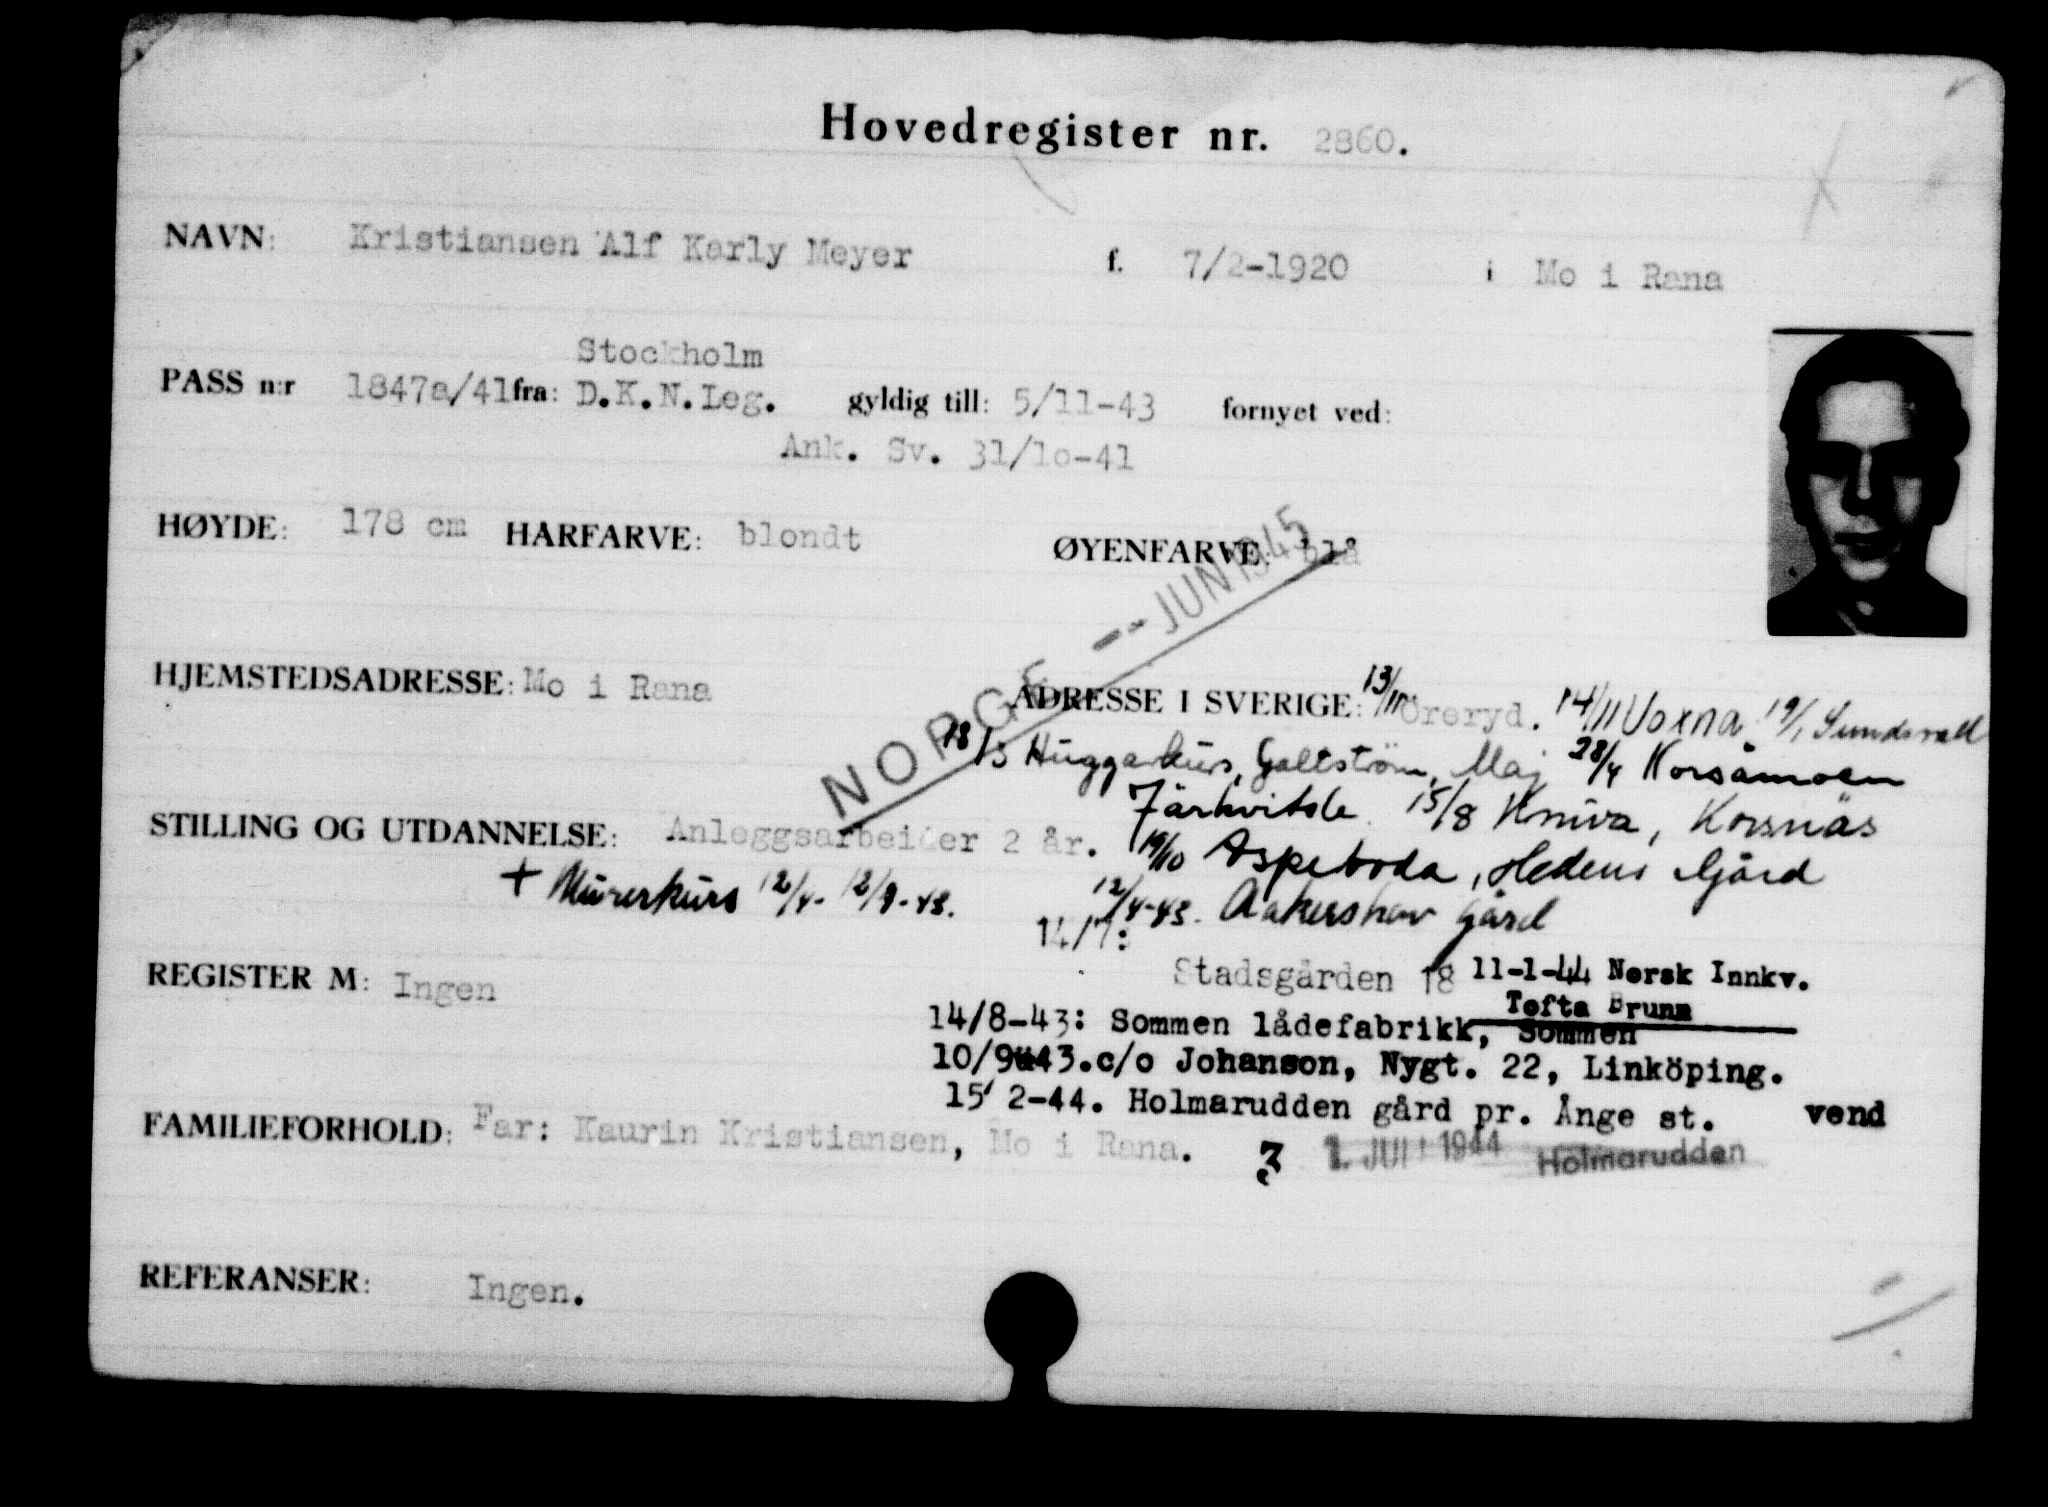 Hovedregister nr. 2860.
NAVN: Kristiansen Alf Karly Meyer f. 7/2-1920 i Mo i Rana
Stockholm
PASS n:r 1847a/41 fra: D.K.N.Leg. gyldig till: 5/11-43 fornyet ved:
Ank. Sv. 31/10-41
HØYDE: 178 cm HARFARVE: blondt ØYENFARVE: blå
NORGE -- JUN 1945
HJEMSTEDSADRESSE: Mo i Rana ADRESSE I SVERIGE: 13/11 Öreryd. 14/11 Voxna 19/1 Sundsvall
18/3 Huggarkurs, Galtström, Maj 28/4 Korsåmoen
Järkvitsle 15/8 Kniva, Korsnäs
STILLING OG UTDANNELSE: Anleggsarbeider 2 år. 19/10 Aspeboda, Hedens Gård
+ Murerkurs 12/4- 12/9-43. 12/4-43. Aakershov Gård
14/7:
REGISTER M: Ingen Stadsgården 18 11-1-44 Norsk Innkv.
Tofta Brunn
14/8-43: Sommen lådefabrikk, Sommen
10/9-43. c/o Johanson, Nygt. 22, Linköping.
15/2-44. Holmarudden gård pr. Ånge st. vend
FAMILIEFORHOLD: Far: Kaurin Kristiansen, Mo i Rana. 1. JULI 1944 Holmarudden
REFERANSER: Ingen.